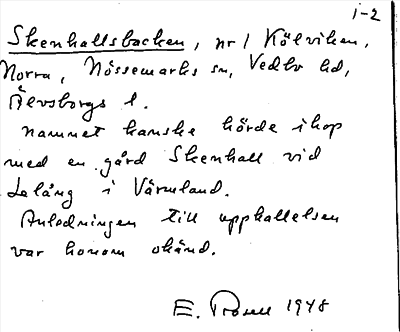 1-2
Skenhallsbacken, nr 1 Kölviken,
Norra, Nössemarks sn, Vedbo hd,
Älvsborgs l.
Namnet kanske hörde ihop
med en gård Skenhall vid
Lelång i Värmland.
Anledningen till upphallelsen
var honom okänd.
E. 1948